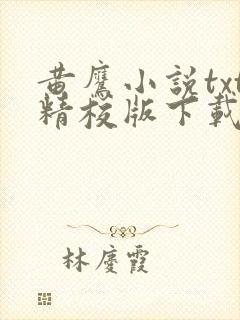 黄鷹小說txt
精校版下載
林慶霞